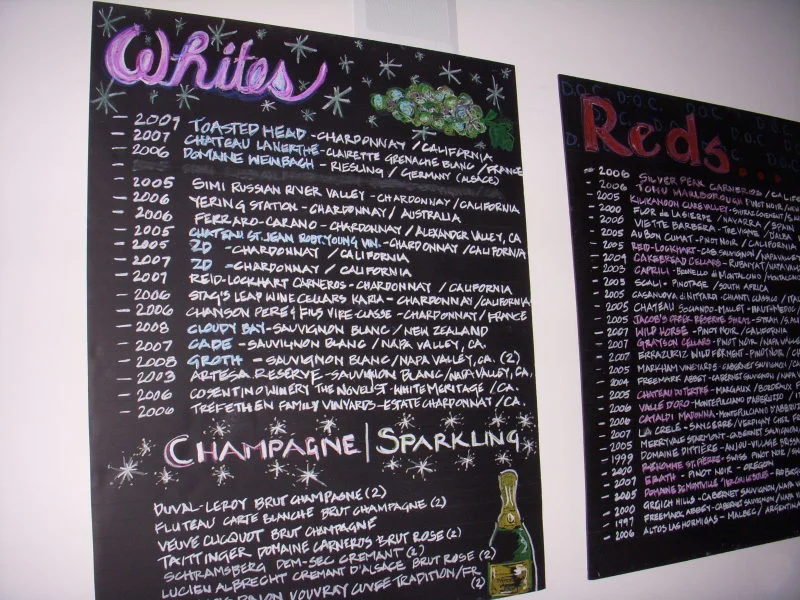 Whites
- 2009 TOASTED HEAD - CHARDONNAY / CALIFORNIA
- 2007 CHATEAU LANERTHE - CLAIRETTE GRENACHE BLANC / FRANCE
- 2006 DOMAINE WEINBACH - RIESLING / GERMANY (ALSACE)
- 2005 SIMI RUSSIAN RIVER VALLEY - CHARDONNAY / CALIFORNIA
- 2006 YERING STATION - CHARDONNAY / AUSTRALIA
- 2006 FERRARO-CARANO - CHARDONNAY / ALEXANDER VALLEY, CA
- 2005 CHATEAU ST. JEAN ROBT. YOUNG VIN. - CHARDONNAY / CALIFORNIA
- 2005 ZD - CHARDONNAY / CALIFORNIA
- 2007 ZD - CHARDONNAY / CALIFORNIA
- 2007 REID-LOCKHART CARNEROS - CHARDONNAY / CALIFORNIA
- 2006 STAG'S LEAP WINE CELLARS KARIA - CHARDONNAY / CALIFORNIA
- 2006 CHANSON PERE & FILS VIRE-CLASSE - CHARDONNAY / FRANCE
- 2008 CLOUDY BAY - SAUVIGNON BLANC / NEW ZEALAND
- 2007 CADE - SAUVIGNON BLANC / NAPA VALLEY, CA.
- 2008 GROTH - SAUVIGNON BLANC / NAPA VALLEY, CA. (2)
- 2003 ARTESA RESERVE - SAUVIGNON BLANC / NAPA VALLEY, CA.
- 2006 COSENTINO WINERY THE NOVELIST - WHITE MERITAGE / CA.
- 2006 TREFETHEN FAMILY VINYARDS - ESTATE CHARDONNAY / CA.
CHAMPAGNE | SPARKLING
DUVAL-LEROY BRUT CHAMPAGNE (2)
FLUTEAU CARTE BLANCHE BRUT CHAMPAGNE (2)
VEUVE CLICQUOT BRUT CHAMPAGNE
TAITTINGER DOMAINE CARNEROS BRUT ROSE (2)
SCHRAMSBERG DEMI-SEC CREMANT (2)
LUCIEN ALBRECHT CREMANT D'ALSACE BRUT ROSE (2)
VOUVRAY CUVEE TRADITION / FR (2)
D.O.C. D.O.C. D.O.C. D.O.C.
Reds...
- 2006 SILVER PEAK CARNEROS / CALIF
- 2006 TOHU MARLBOROUGH PINOT NOIR
- 2005 KILIKANOON CLARE VALLEY - SHIRAZ
- 2000 FLOR de LASIERDE / NAVARRA / SPAIN
VIETTE BARBERA - TRE VIGNE / D'ALBA
AU BON CLIMAT - PINOT NOIR / CALIFORNIA
- 2005 RED-LOCKHART - CAB. SAUVIGNON / NAPA VALLEY
- 2004 CAKEBREAD CELLARS - RUBAIYAT / NAPA VALLEY
- 2003 CAPRILI - BRUNELLO di MONTALCINO
- 2005 SCALI - PINOTAGE / SOUTH AFRICA
- 2005 CASANOVA di NITTARDI - CHIANTI CLASSICO
- 2005 CHATEAU SOCIANDO-MALLET - HAUT-MEDOC
- 2005 JACOB'S CREEK RESERVE SHIRAZ - SYRAH
- 2007 WILD HORSE - PINOT NOIR / CALIFORNIA
- 2007 GRAYSON CELLARS - PINOT NOIR / NAPA
- 2007 ERRAZURIZ WILD FERMENT - PINOT NOIR
- 2005 MARKHAM VINEYARDS - CABERNET SAUVIGNON
- 2004 FREEMARK ABBEY - CABERNET SAUVIGNON / NAPA
- 2005 CHATEAU DU TERTRE - MARGAUX / BORDEAUX
- 2006 VALLE D'ORO - MONTEPULCIANO D'ABRUZZO
- 2006 CATALDI MADONNA - MONTEPULCIANO D'ABRUZZO
- 2007 LA CRELE - SANCERRE / VERDIGNY
- 2005 MERRYVALE STARMONT - CABERNET SAUVIGNON
- 1999 DOMAINE DITTIERE - ANJOU-VILLAGE BRISSAC
- 2000 ST. PIERRE - SWISS PINOT NOIR
- 2007 ERATH - PINOT NOIR - OREGON
- 2005 DOMAINE DE MONTVILLE
- 2000 GRGICH HILLS - CABERNET SAUVIGNON / NAPA
- 1997 FREEMARK ABBEY - CABERNET SAUVIGNON / NAPA
- 2006 ALTOS LAS HORMIGAS - MALBEC / ARGENTINA